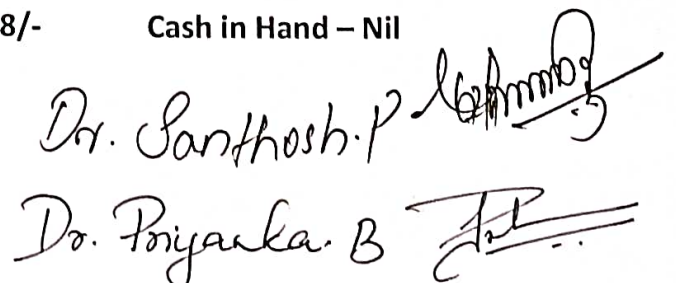 8/- Cash in Hand – Nil
Dr. Santhosh.P
Dr. Priyanka. B